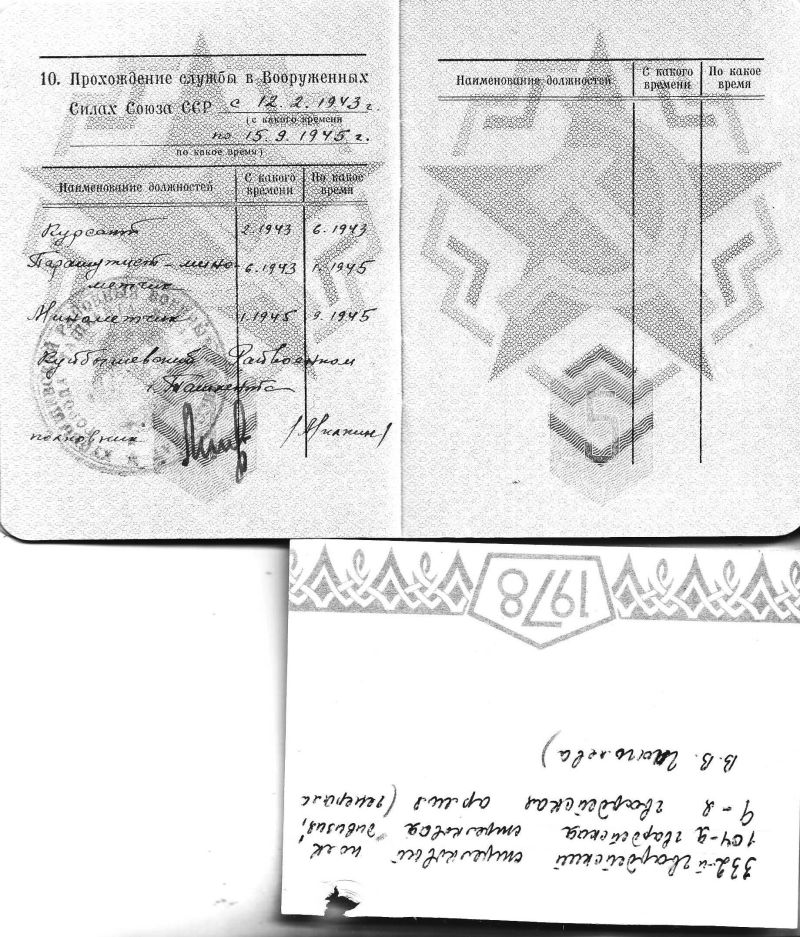 10. Прохождение службы в Вооруженных
Силах Союза ССР с 12. 2. 1943 г.
(с какого времени
по 15. 9. 1945 г.
по какое время)
Наименование должностей С какого времени По какое время
Курсант 2.1943 6.1943
Парашутист-мино- 6.1943 1.1945
метчик
Минометчик 1.1945 9.1945
Куйбышевский Райвоенком
г. Ташкента
полковник
Наименование должностей С какого времени По какое время
1978
332-й гвардейский стрелковый полк,
104-я гвардейская стрелковая дивизия,
9-я гвардейская армия (генерала
В.В. Глаголева)